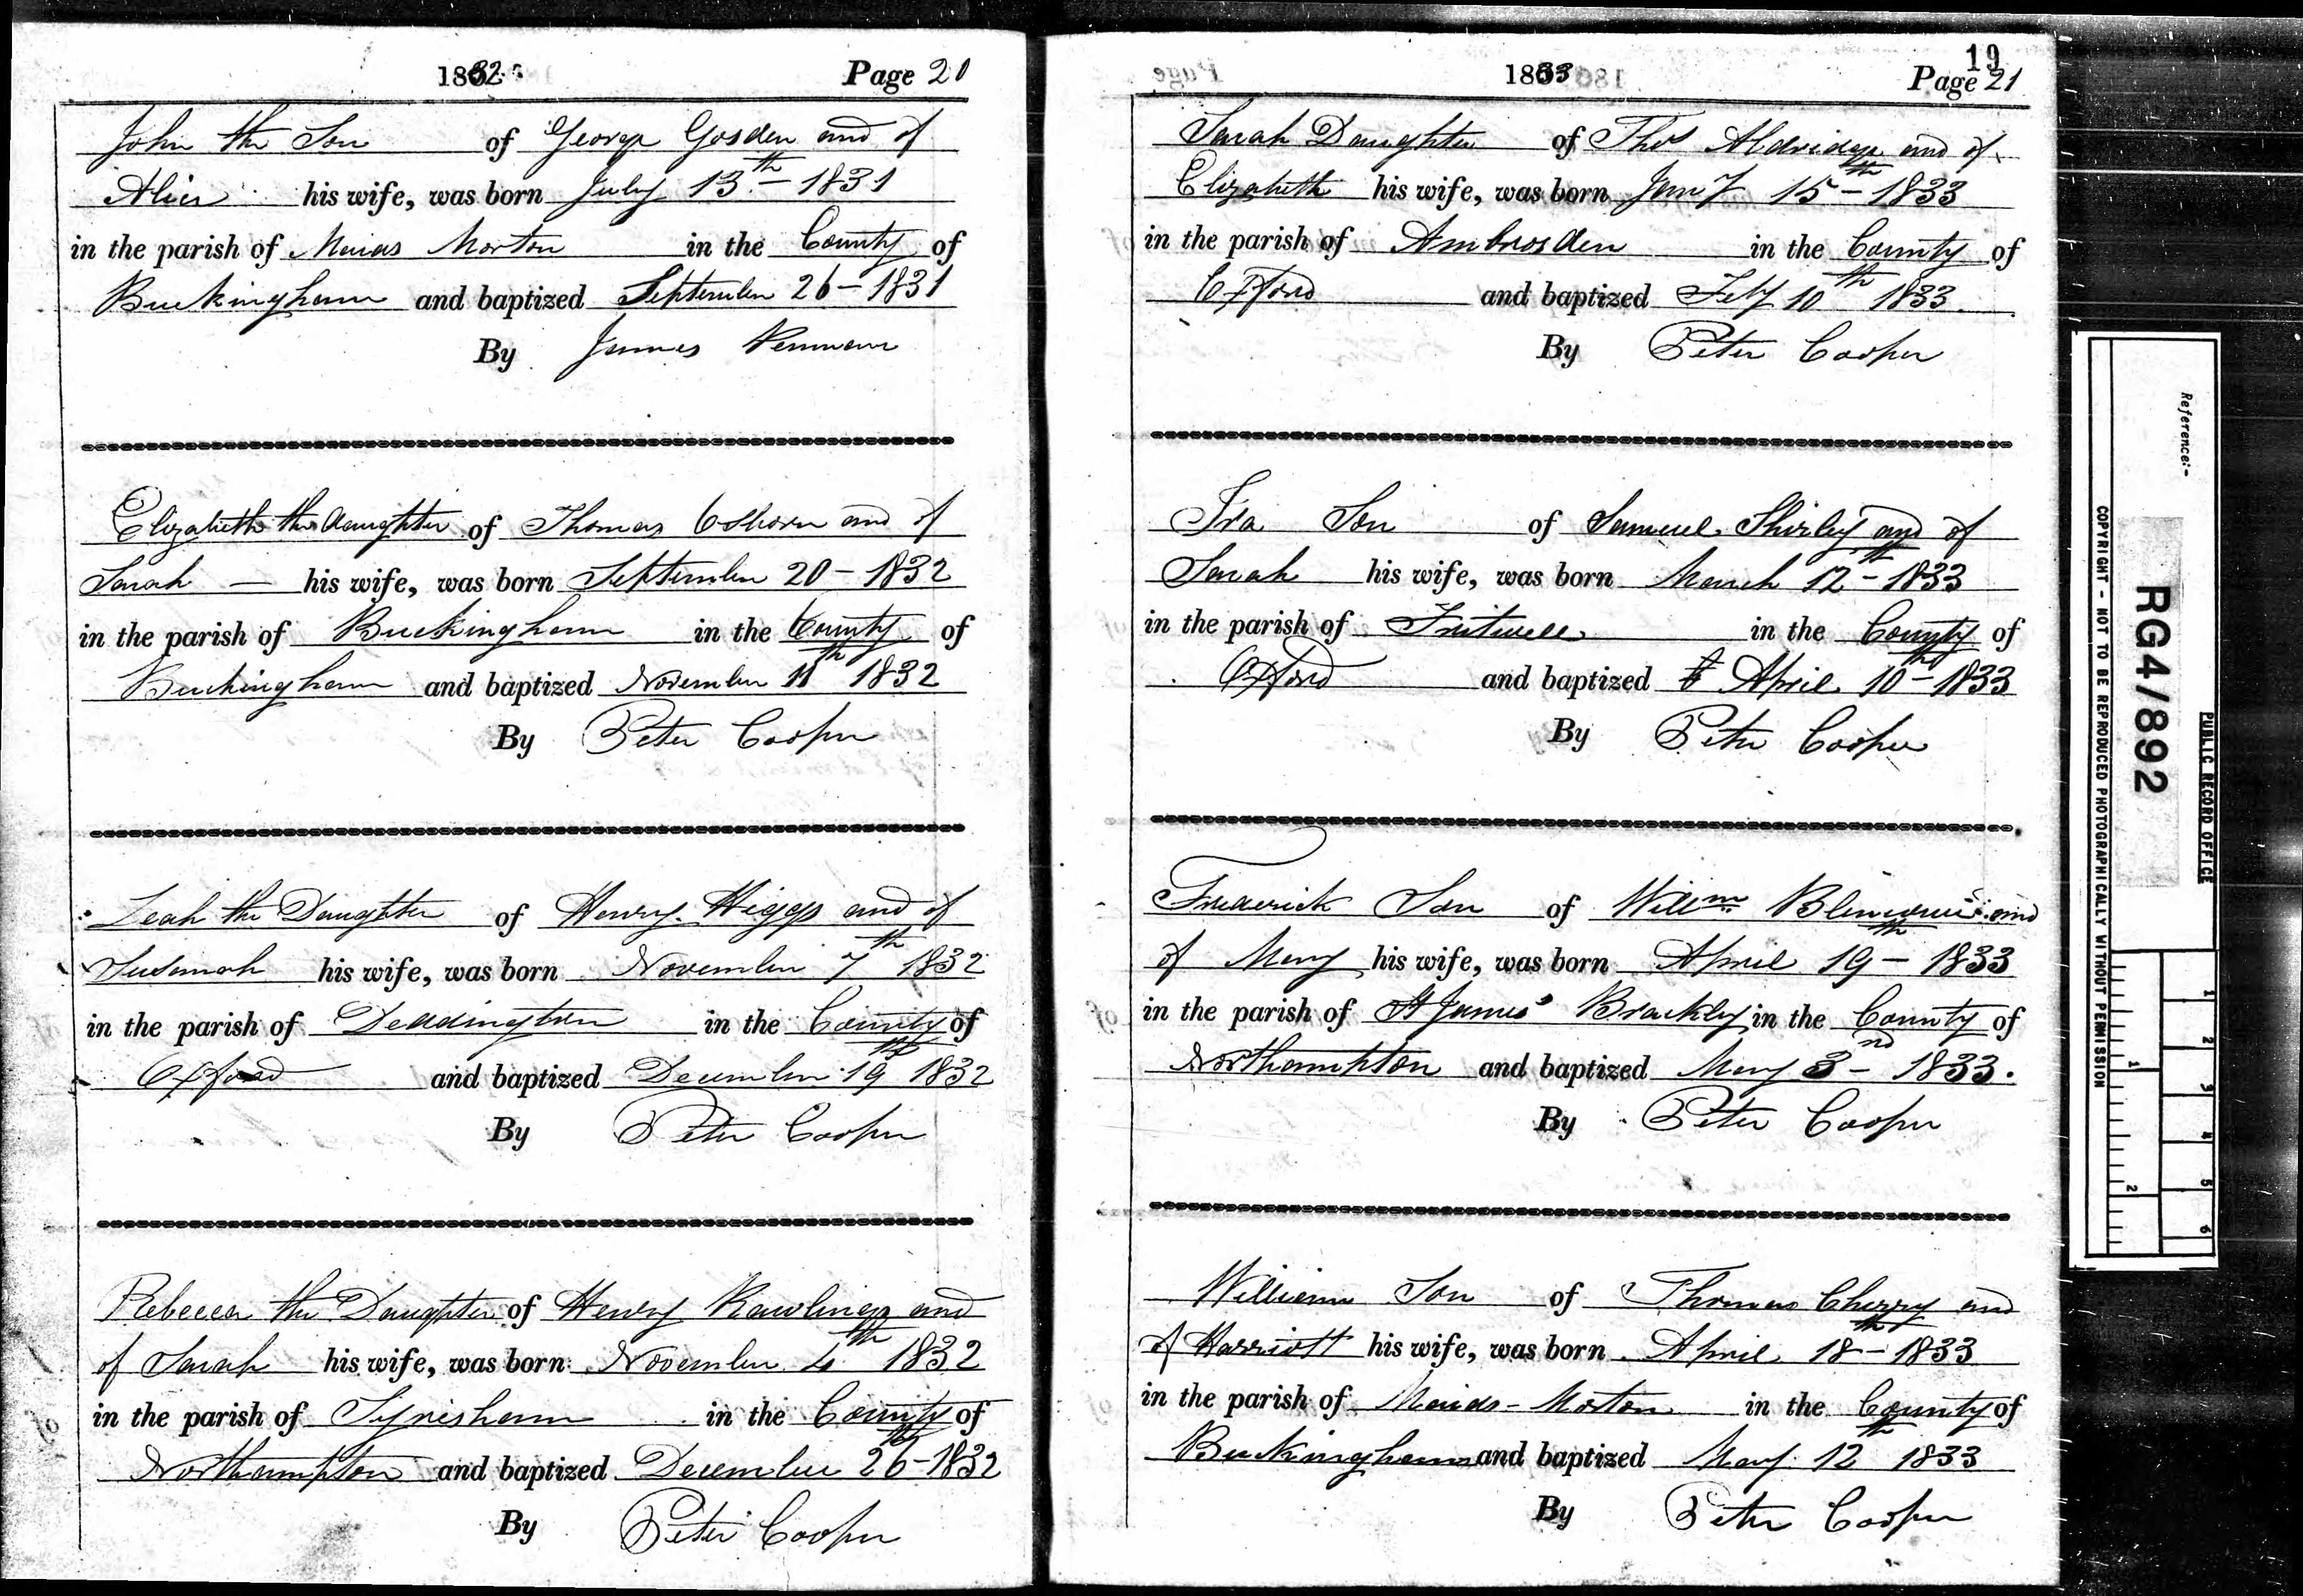 1832 Page 20
John the Son of George Gosden and of
Alice his wife, was born July 13th - 1831
in the parish of Maids Morton in the County of
Buckingham and baptized September 26 - 1831
By James Penman
Elizabeth the daughter of Thomas Osborn and of
Sarah — his wife, was born September 20 - 1832
in the parish of Buckingham in the County of
Buckingham and baptized November 11th 1832
By Peter Cooper
Leah the Daughter of Henry Higgs and of
Susannah his wife, was born November 7th 1832
in the parish of Deddington in the County of
Oxford and baptized December 19th 1832
By Peter Cooper
Rebecca the Daughter of Henry Rawlings and
of Sarah his wife, was born November 4th 1832
in the parish of Syresham in the County of
Northampton and baptized December 26th - 1832
By Peter Cooper
19
1833 Page 21
Sarah Daughter of Thos Aldridge and of
Elizabeth his wife, was born Jany 15th - 1833
in the parish of Ambrosden in the County of
Oxford and baptized Feby 10th 1833.
By Peter Cooper
Ira Son of Samuel Shirley and of
Sarah his wife, was born March 12th - 1833
in the parish of Fritwell in the County of
Oxford and baptized April 10th - 1833
By Peter Cooper
Frederick Son of Willm and
of Mary his wife, was born April 19th - 1833
in the parish of St James' Brackley in the County of
Northampton and baptized May 3nd - 1833.
By Peter Cooper
William Son of Thomas Cherry and
of Harriott his wife, was born April 18th - 1833
in the parish of Maids - Morton in the County of
Buckingham and baptized May 12th 1833
By Peter Cooper
Reference:-
PUBLIC RECORD OFFICE
RG4/892
COPYRIGHT - NOT TO BE REPRODUCED PHOTOGRAPHICALLY WITHOUT PERMISSION
1 2 3 4 5 6
1 2